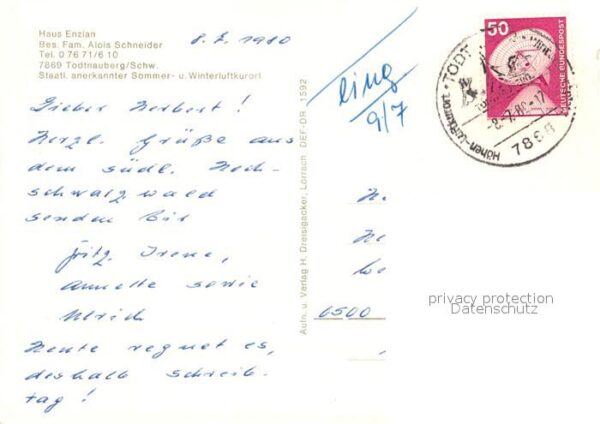 Haus Enzian
Bes. Fam. Alois Schneider
Tel. 0 76 71/6 10
7869 Todtnauberg/Schw.
Staatl. anerkannter Sommer- u. Winterluftkurort
8.7.1980
Lieber Herbert!
Herzl. Grüße aus
dem südl. Hoch-
schwarzwald
senden Dir
Fritz, Irene,
Annette sowie
Ulrich
Heute regnet es,
deshalb Schreib-
tag!
Autn. u. Verlag H. Dreisigacker, Lörrach DEF-DR 1592
eing
9/7
50
DEUTSCHE BUNDESPOST
TODT
-8.-7.80-17
7868
Höhen-Luftkurort
6500
privacy protection
Datenschutz